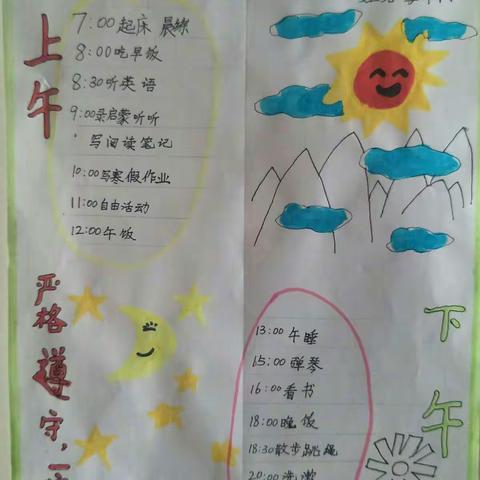 上午
7:00起床 晨练
8:00吃早饭
8:30听英语
9:00录启蒙听听
写阅读笔记
10:00写寒假作业
11:00自由活动
12:00午饭
严格遵守,一
下午
13:00午睡
15:00弹琴
16:00看书
18:00晚饭
18:30散步跳绳
20:00洗漱